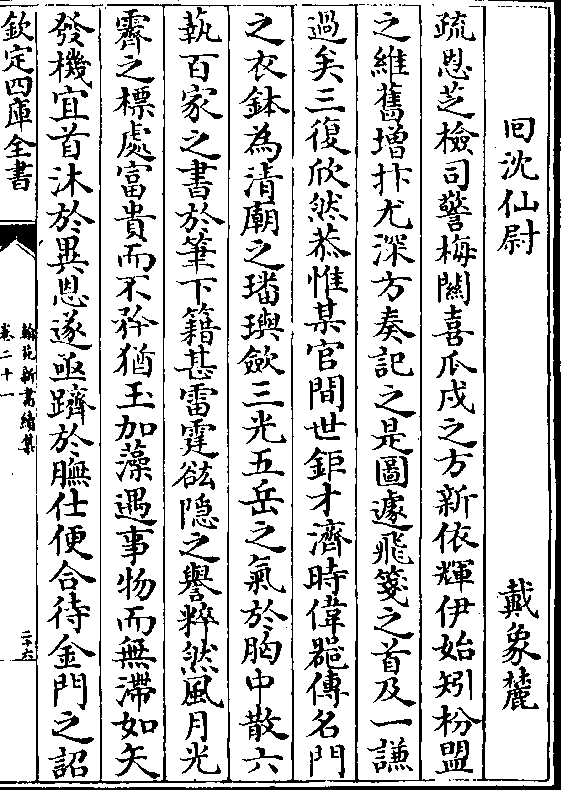 回沈仙尉　戴象麓
疏恩芝檢司警梅關喜瓜戍之方新依輝伊始矧枌盟
之維舊增抃尤深方奏記之是圖遽飛箋之首及一謙
過矣三復欣然恭惟某官間世鉅才濟時偉器傳名門
之衣鉢為清廟之璠璵斂三光五岳之氣於胸中散六
藝百家之書於筆下籍甚雷霆𧮫隐之譽粹然風月光
霽之標處富貴而不矜猶玉加藻遇事物而無滯如矢
發機宜首沐於異恩遂亟躋於膴仕便合待金門之詔
欽定四庫全書
翰苑新書續集
卷二十一
二六